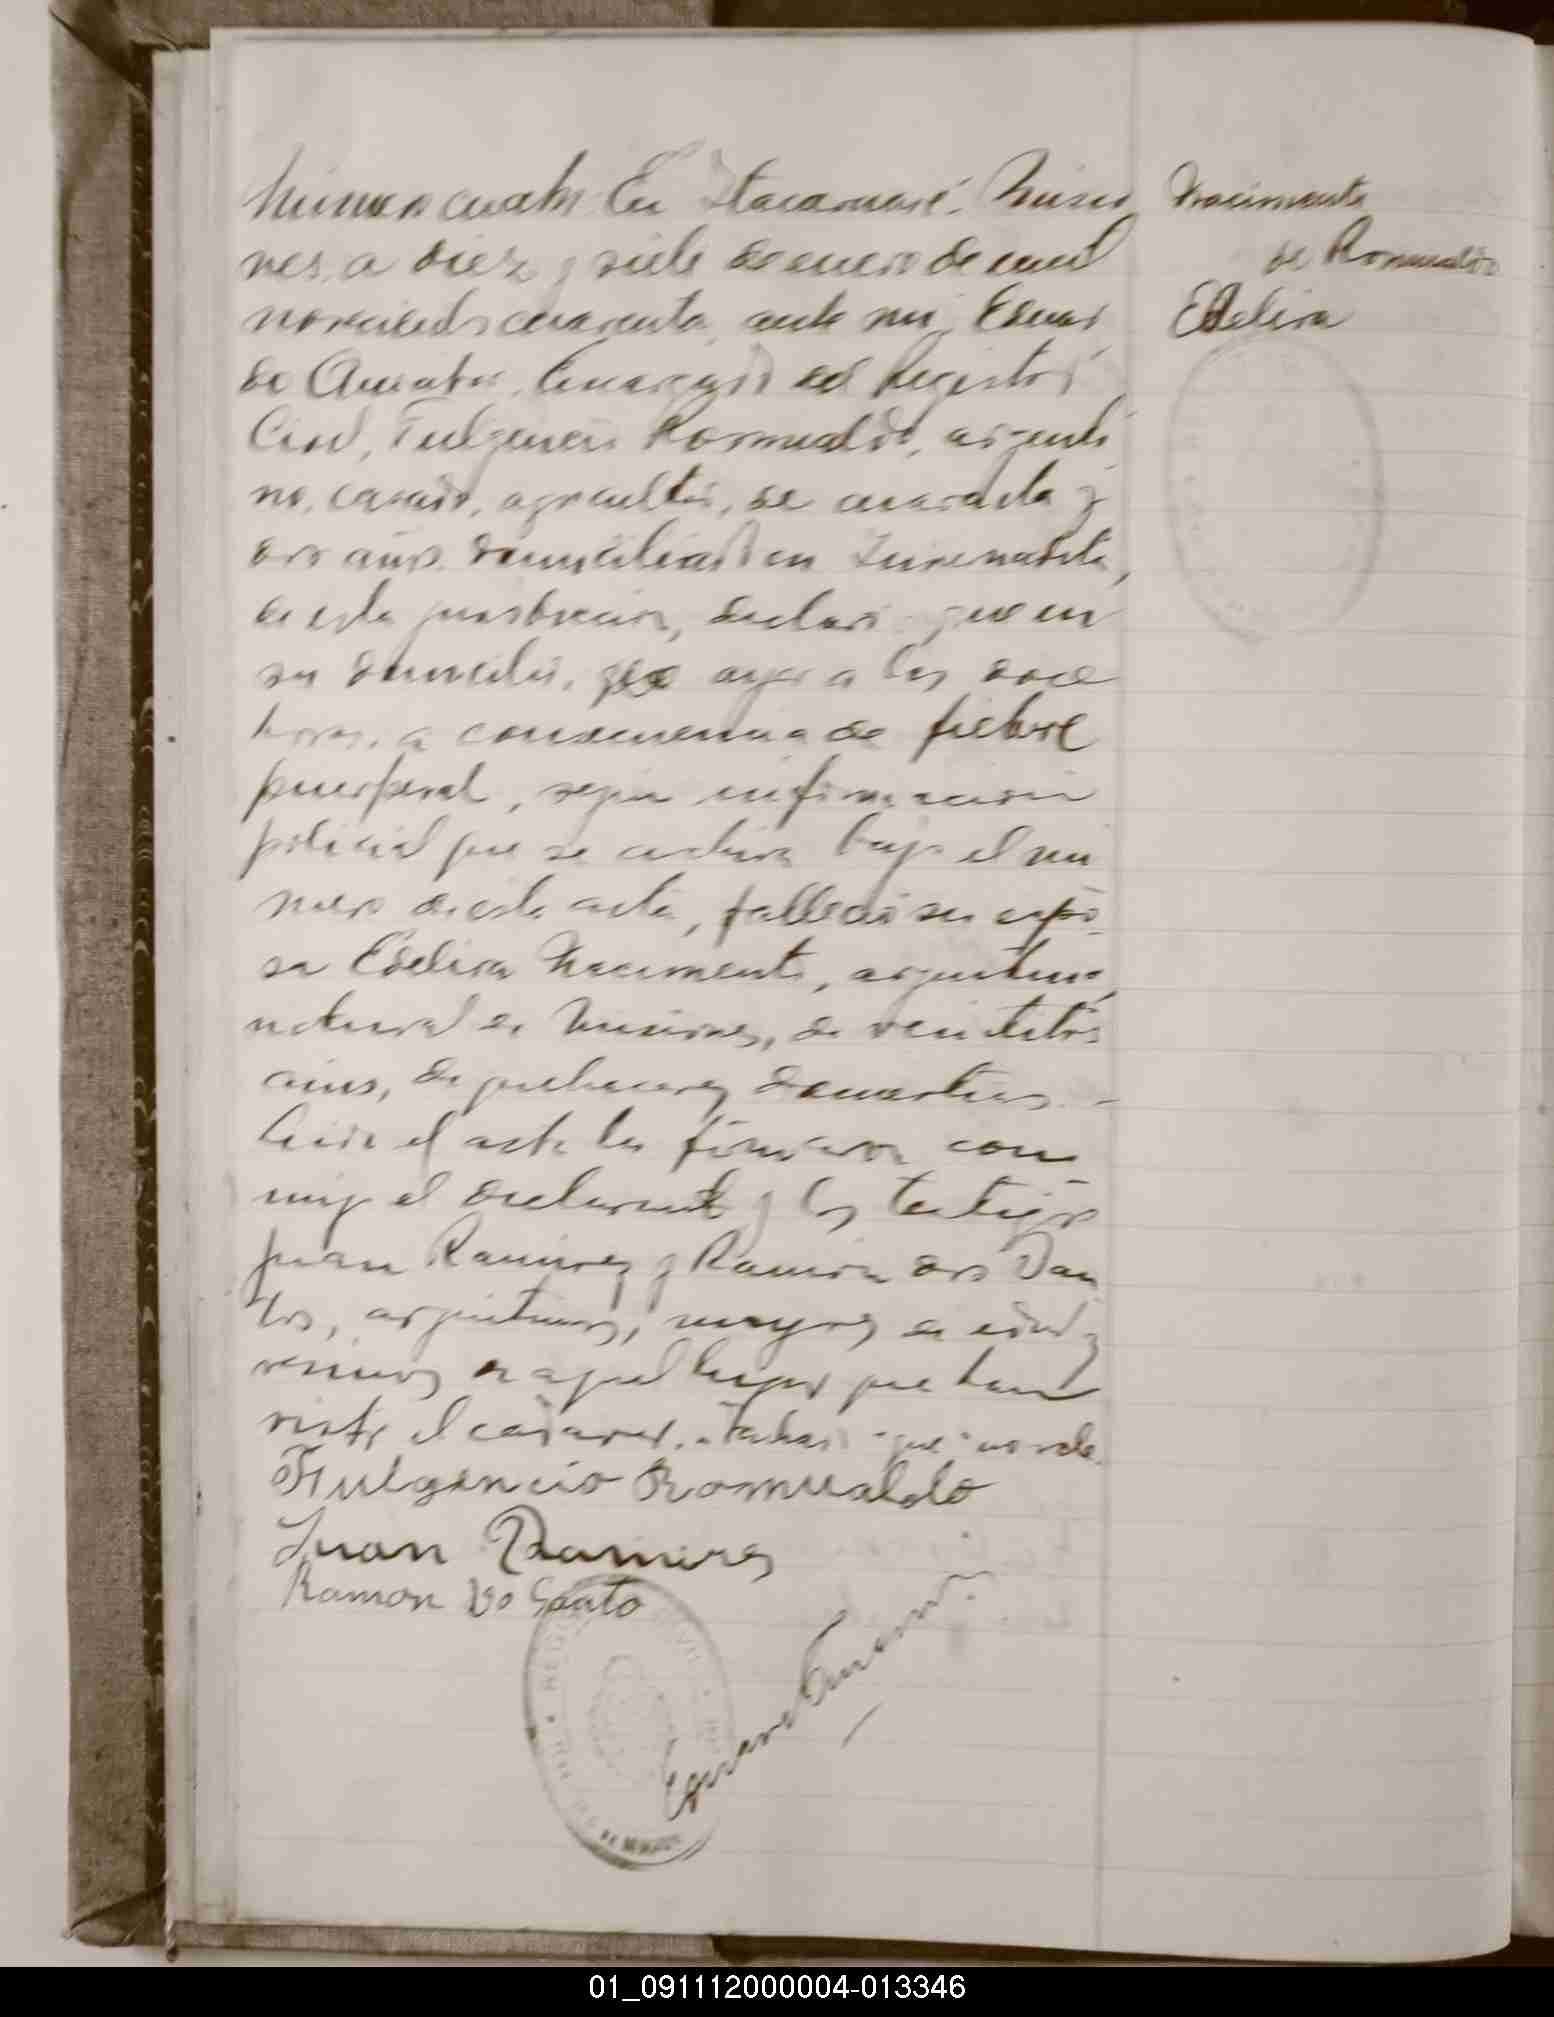 Número cuatro. En Itacaruaré. Misio
nes, a diez y siete de enero de mil
novecientos cuarenta, ante mí, Eduar
do Encargado del Registro
Civil, Fulgencio Romualdo, argenti
no, casado, agricultor, de cuarenta y
dos años domiciliado en
de esta jurisdicción, declaró: que en
su domicilio, que ayer a las doce
horas, a consecuencia de fiebre
puerperal, según información
policial que se archiva bajo el nú
mero de esta acta, falleció su espo
sa Edelira Nacimento, argentina,
natural de Misiones, de veintitrés
años, de quehaceres domésticos. -
Leída el acta la firmaron con
migo el declarante y los testigos
Juan Ramirez y Ramón dos San
tos, argentinos, mayores de edad y
vecinos de aquel lugar que han
visto el cadáver. - Tachado "que" no vale.
Fulgencio Romualdo
Juan Ramires
Ramon Do Santo
Nacimento
de Romualdo
Edelira
01_091112000004-013346